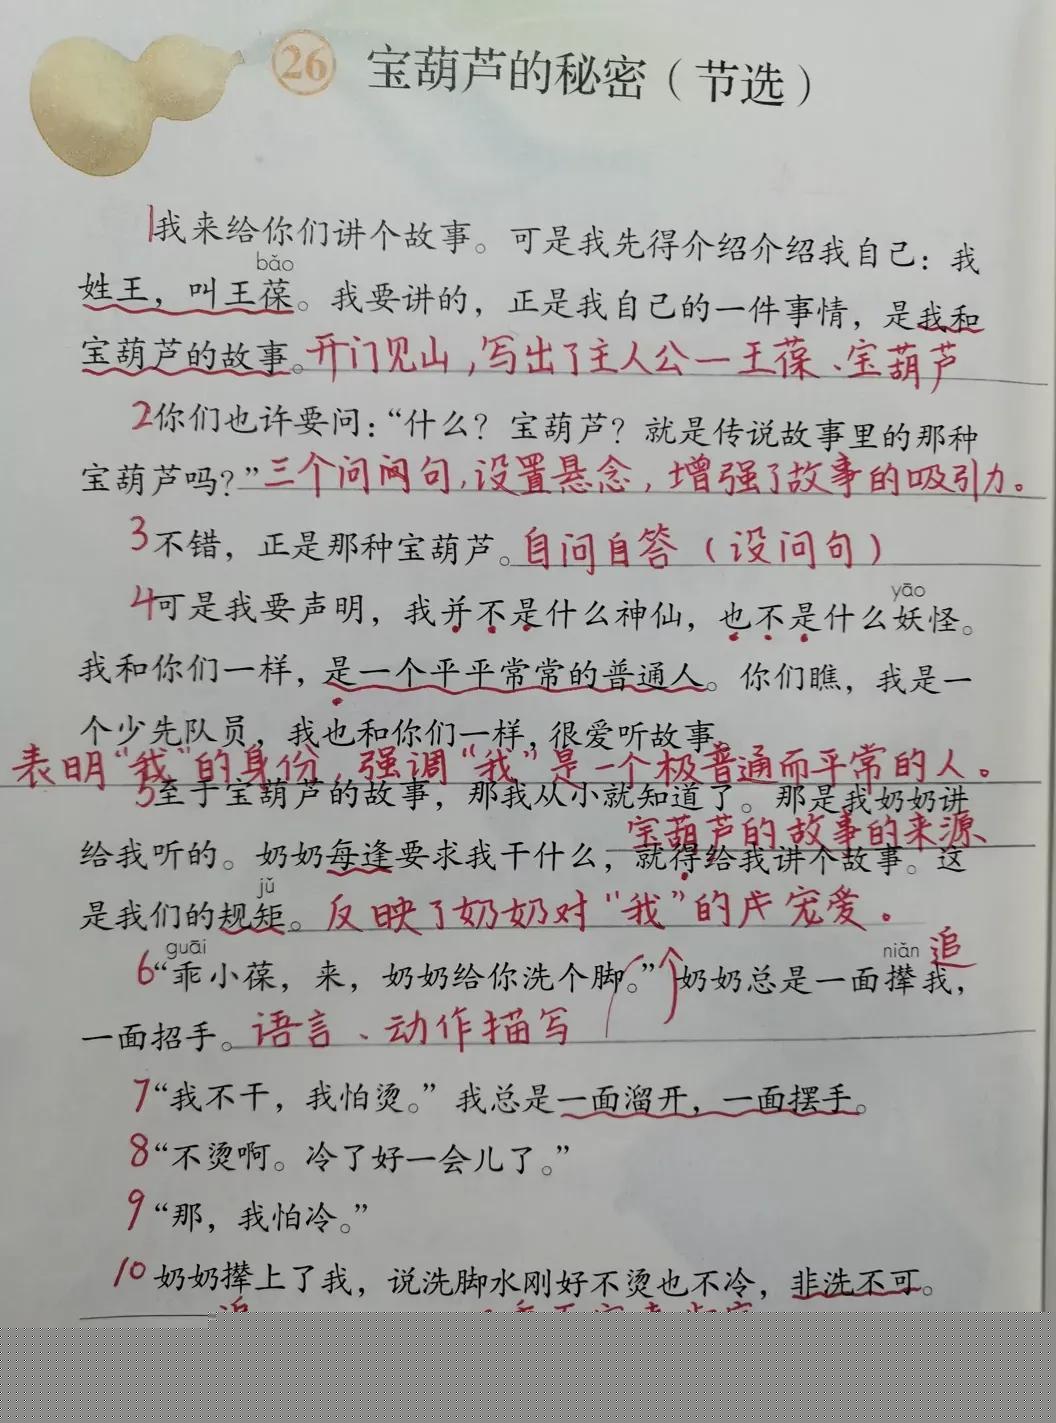 26 宝葫芦的秘密（节选）
1我来给你们讲个故事。可是我先得介绍介绍我自己：我
bǎo
姓王，叫王葆。我要讲的，正是我自己的一件事情，是我和
宝葫芦的故事。开门见山，写出了主人公—王葆、宝葫芦
2你们也许要问：“什么？宝葫芦？就是传说故事里的那种
宝葫芦吗？”三个问问句，设置悬念，增强了故事的吸引力。
3不错，正是那种宝葫芦。自问自答（设问句）
yāo
4可是我要声明，我并不是什么神仙，也不是什么妖怪。
我和你们一样，是一个平平常常的普通人。你们瞧，我是一
个少先队员，我也和你们一样，很爱听故事
表明“我”的身份，强调“我”是一个极普通而平常的人。
5至于宝葫芦的故事，那我从小就知道了。那是我奶奶讲
宝葫芦的故事的来源
给我听的。奶奶每逢要求我干什么，就得给我讲个故事。这
jǔ
是我们的规矩。反映了奶奶对“我”的宠爱。
guāi niǎn 追
6“乖小葆，来，奶奶给你洗个脚。”奶奶总是一面撵我，
一面招手。语言、动作描写
7“我不干，我怕烫。”我总是一面溜开，一面摆手。
8“不烫啊。冷了好一会儿了。”
9“那，我怕冷。”
10奶奶撵上了我，说洗脚水刚好不烫也不冷，非洗不可。